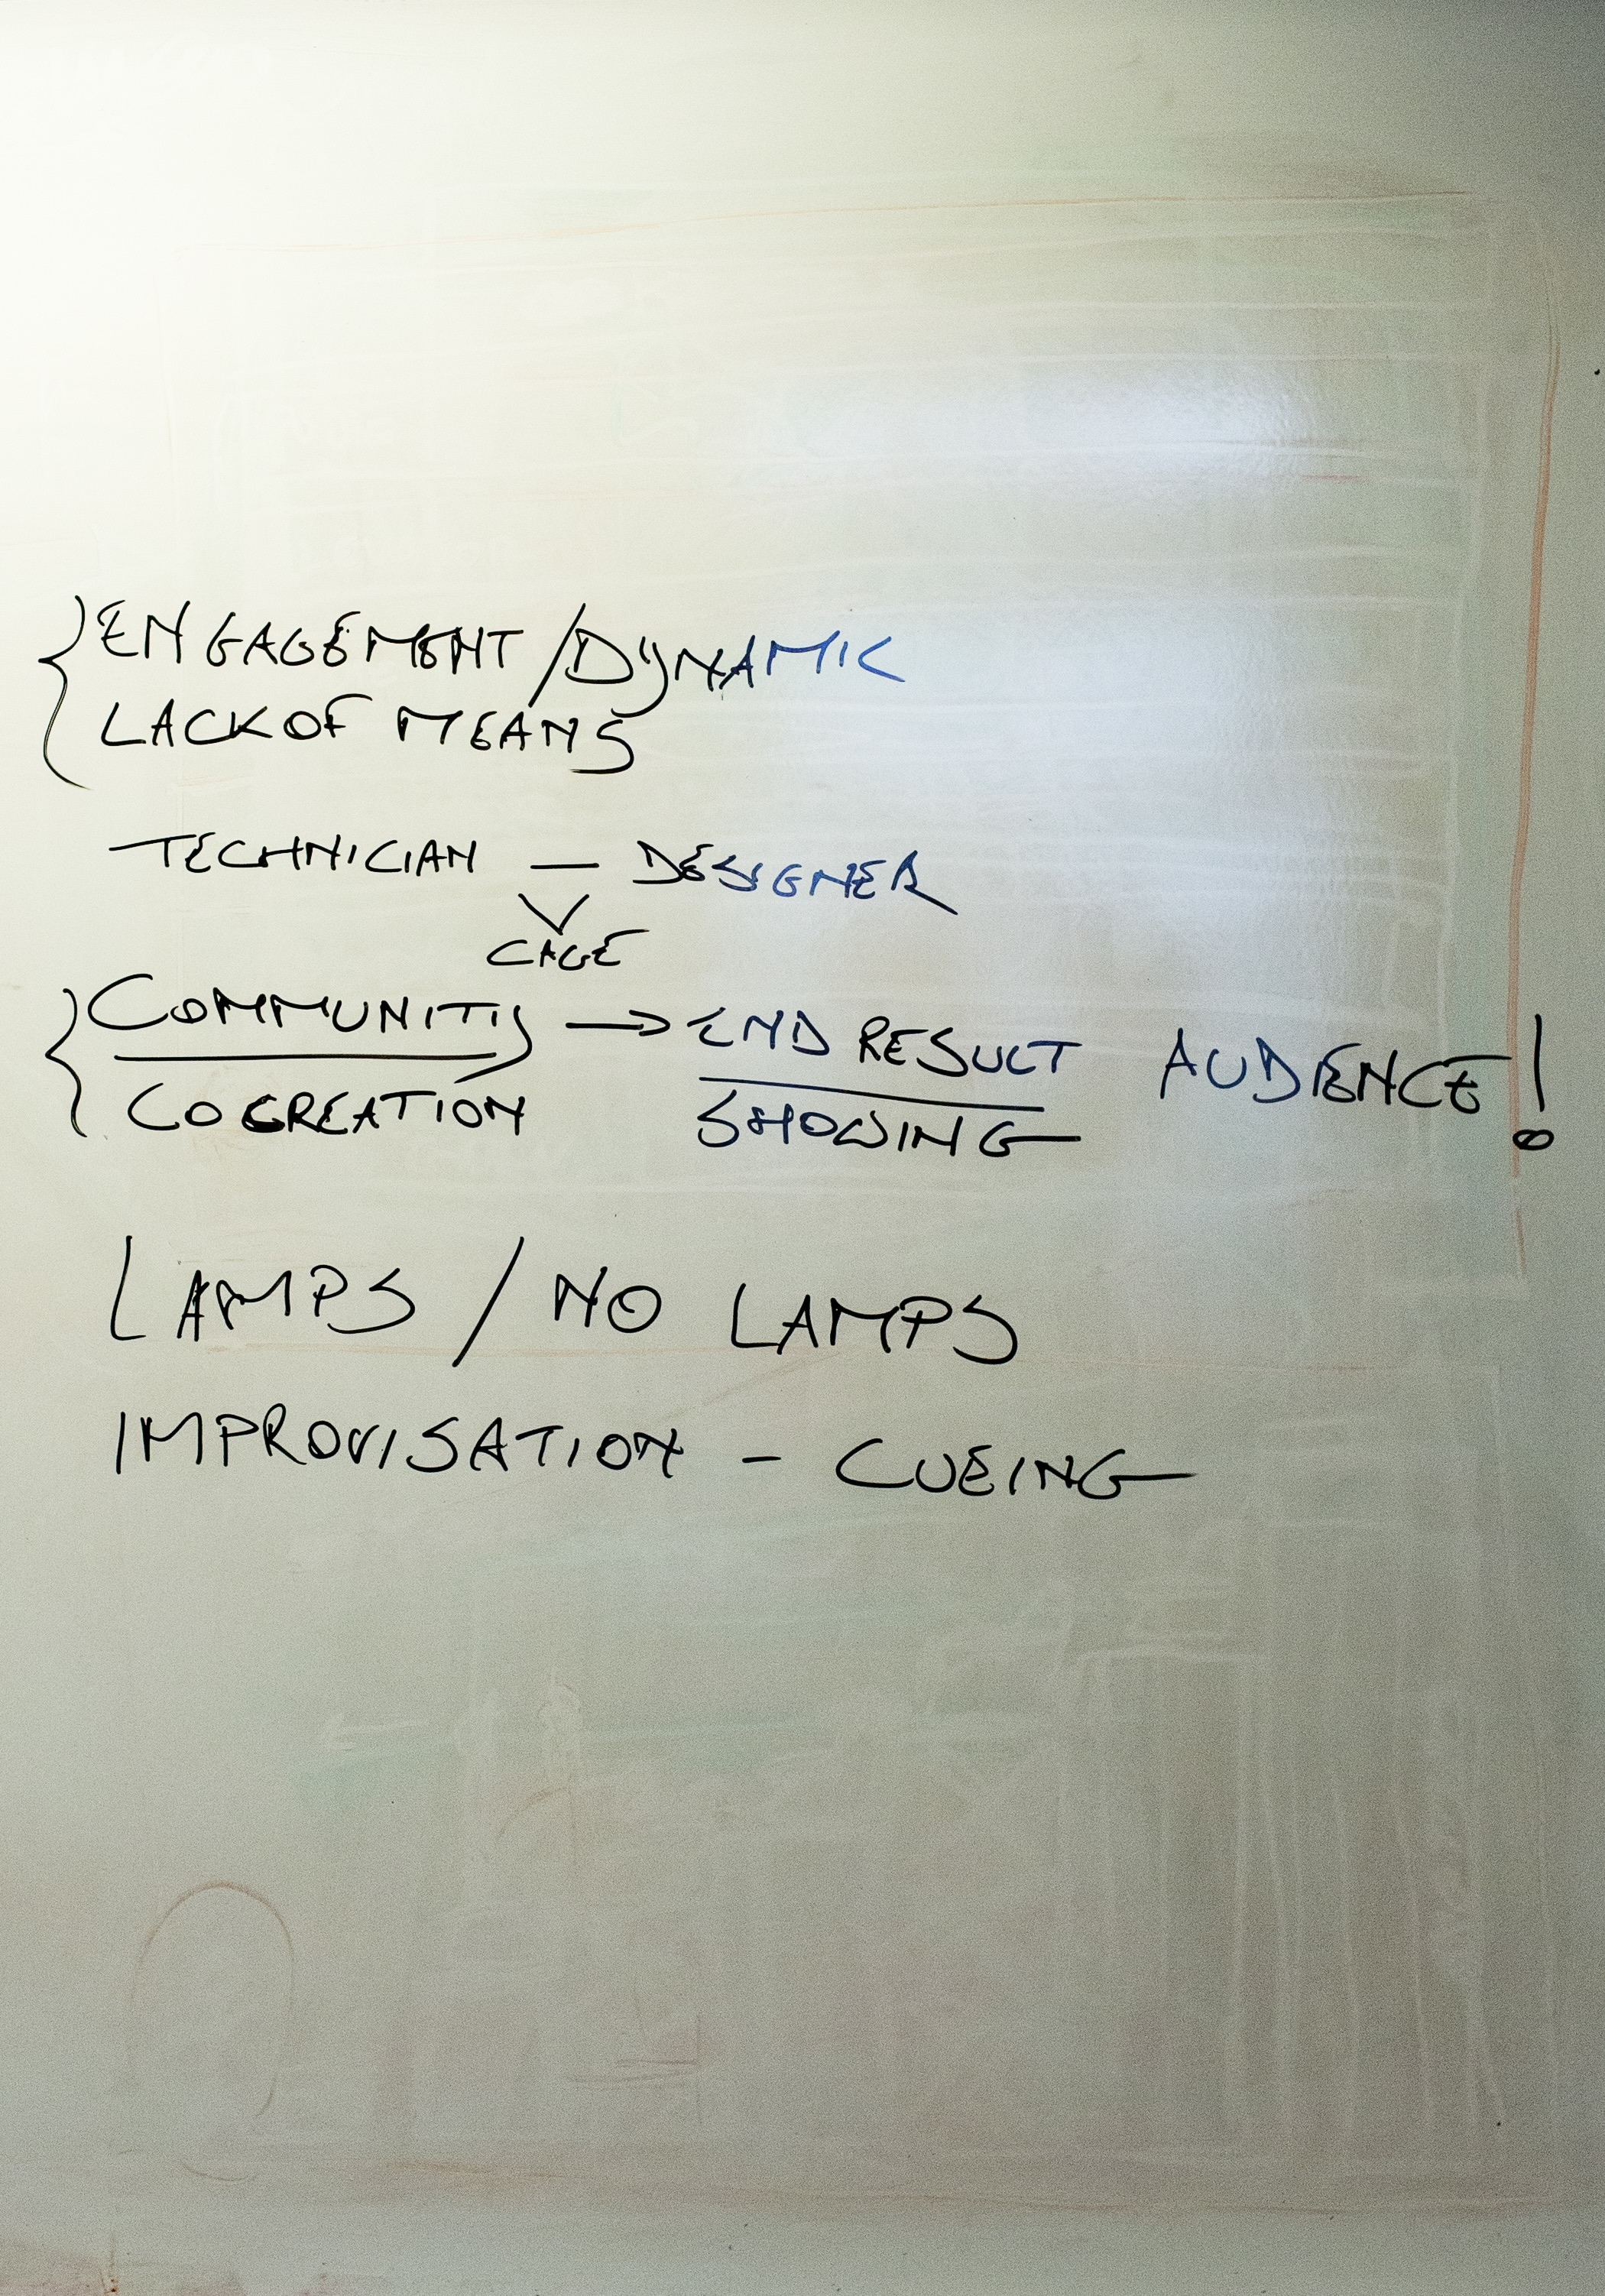 ENGAGEMENT / DYNAMIC
LACK OF MEANS
TECHNICIAN — DESIGNER
CAGE
COMMUNITY → END RESULT AUDIENCE!
COCREATION SHOWING
LAMPS / NO LAMPS
IMPROVISATION - CUEING